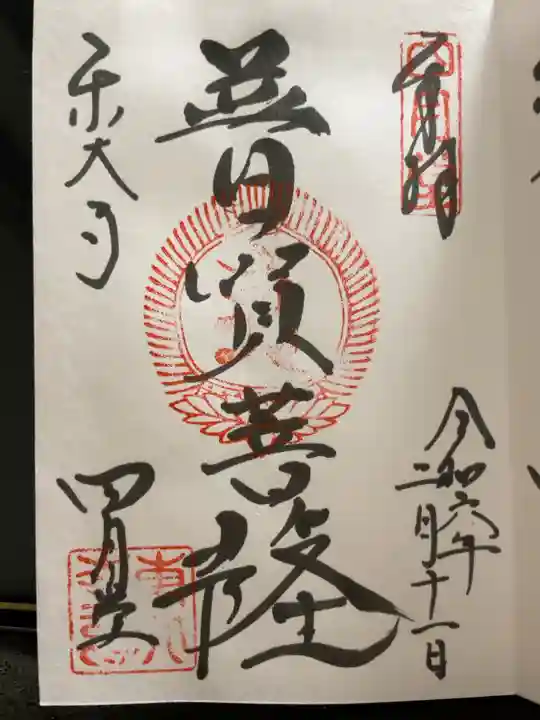 奉拝
令和六年
二月十一日
普賢菩薩
東大寺
四月堂